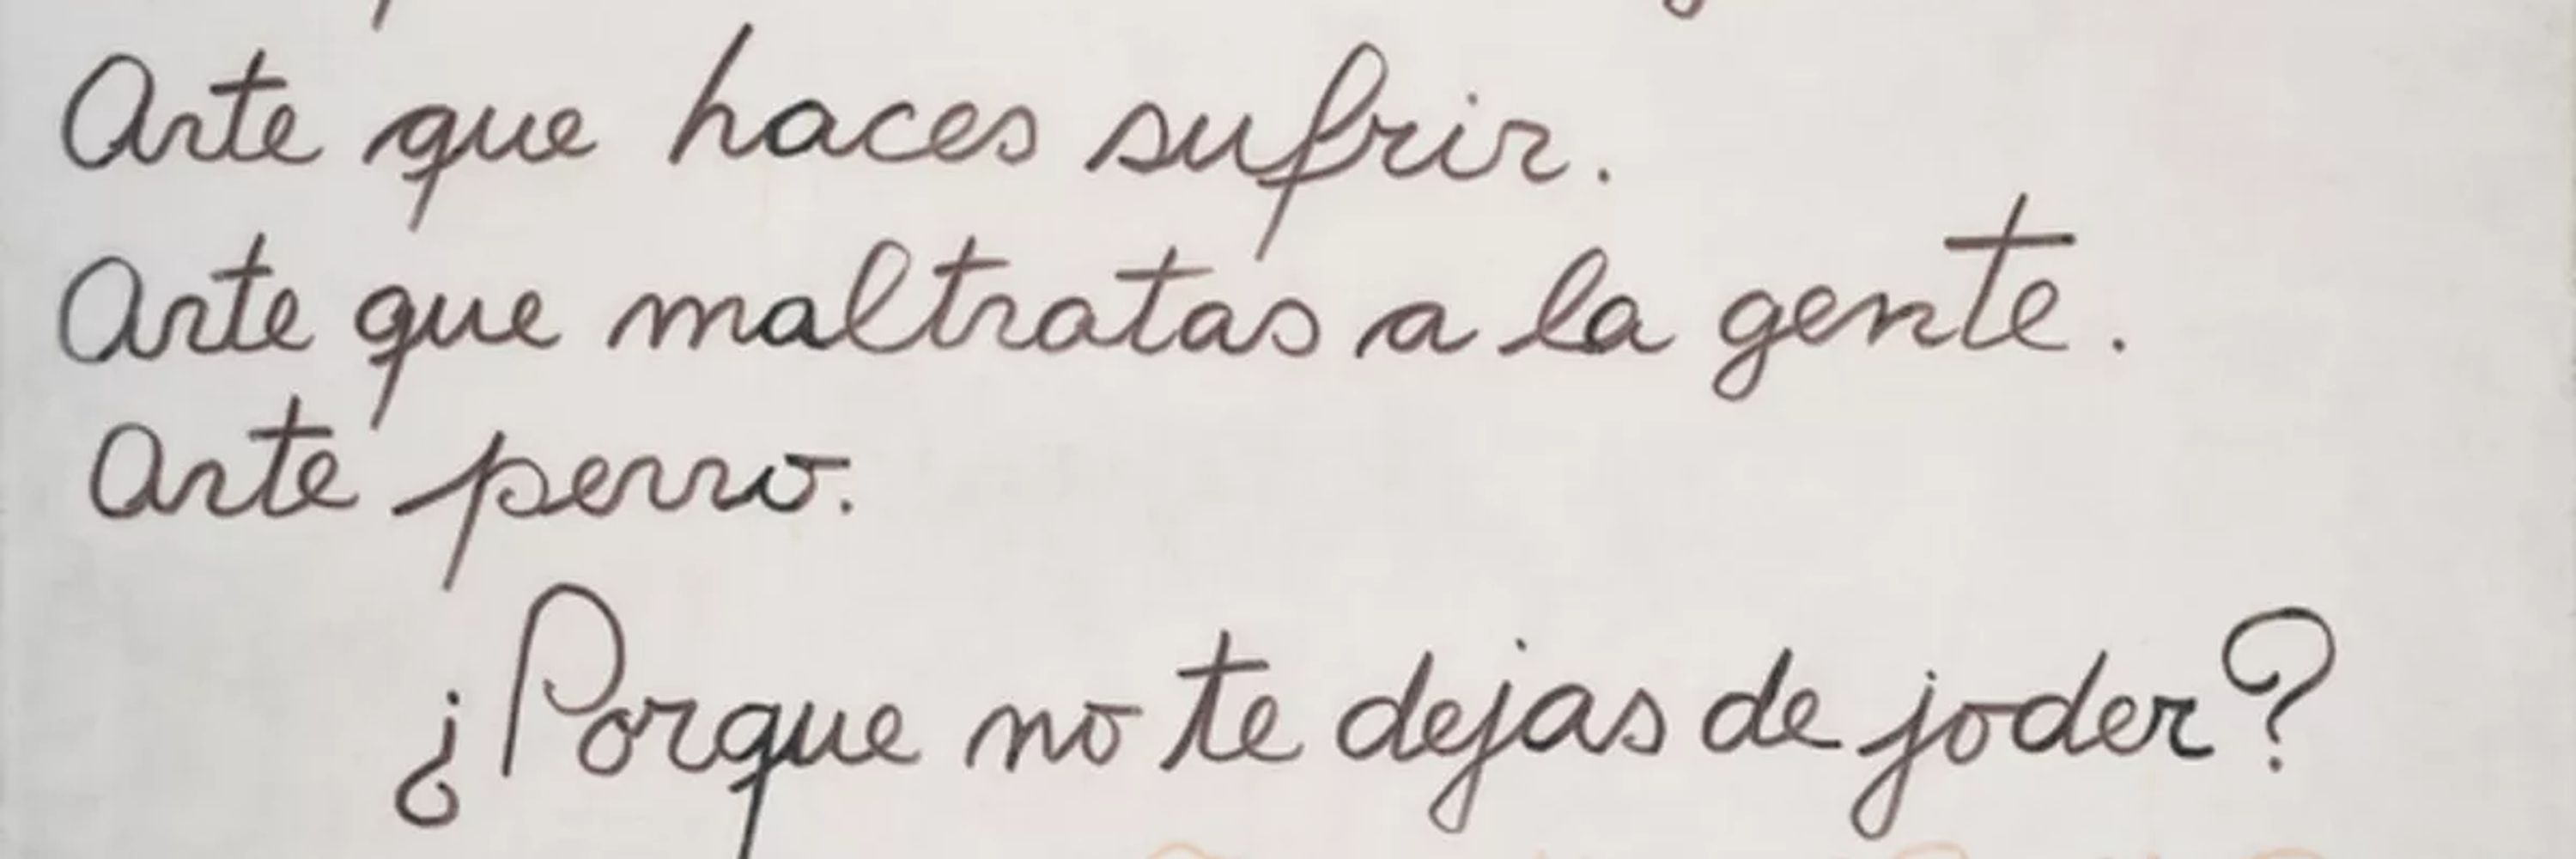 Arte que haces sufrir.
Arte que maltratas a la gente.
Arte perro.
¿Porque no te dejas de joder?